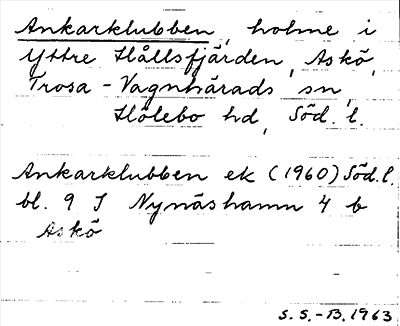 Ankarklubben, holme i
Yttre Hållsfjärden, Askö,
Trosa-Vagnhärads sn,
Hölebo hd, Söd. l.
Ankarklubben ek (1960) Söd. l.
bl. 9 I Nynäshamn 4 b
Askö
S. S.-B. 1963